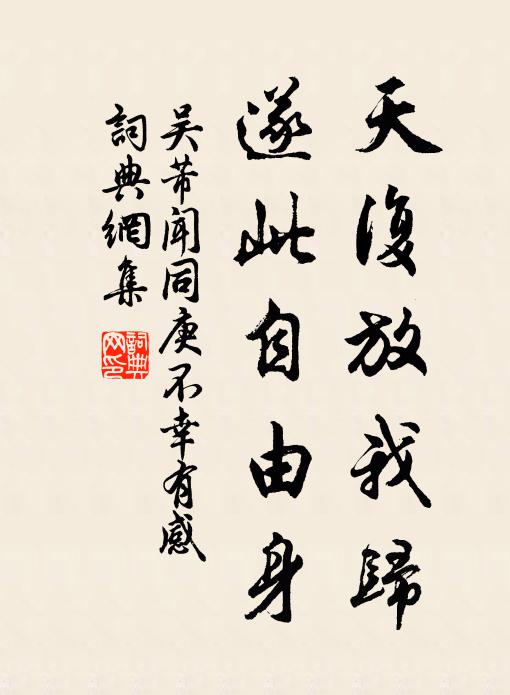 天復放我歸
遂此自由身
吴芾聞同庚不幸有感
詞典網集
詞典网印